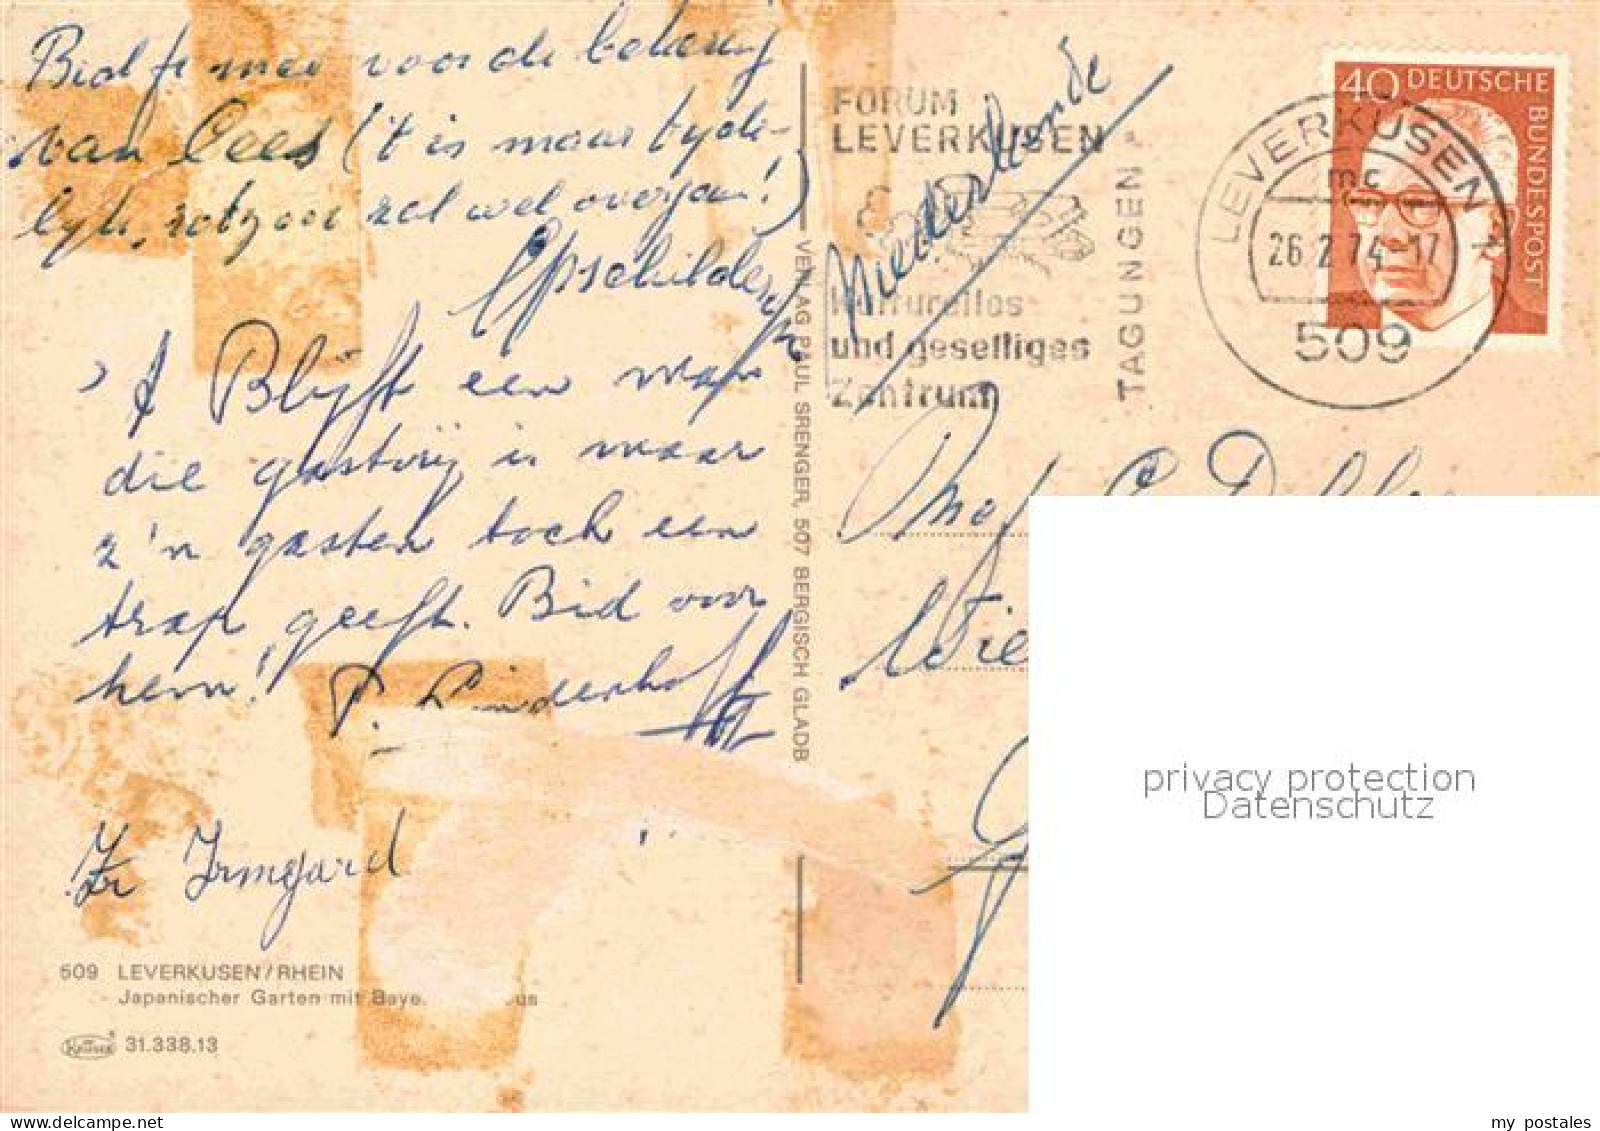 Bid je mee voor de bekering
van Cees ('t is maar tyde-
lyk, rotzooi zal wel overgaan!)
't Blijft een
die gastvrij is maar
z'n gasten toch een
trap geeft. Bid voor
hem! P. Linderhof
Zr Irmgard
509 LEVERKUSEN/RHEIN
Japanischer Garten mit Baye
KRÜGER 31.338.13
VERLAG PAUL SRENGER, 507 BERGISCH GLADB
FORUM
LEVERKUSEN
Kulturelles
und geselliges
Zentrum
TAGUNGEN
Niederlande
LEVERKUSEN 1
mc
26.2.74-17
509
40 DEUTSCHE
BUNDESPOST
Prof
privacy protection
Datenschutz
my postales